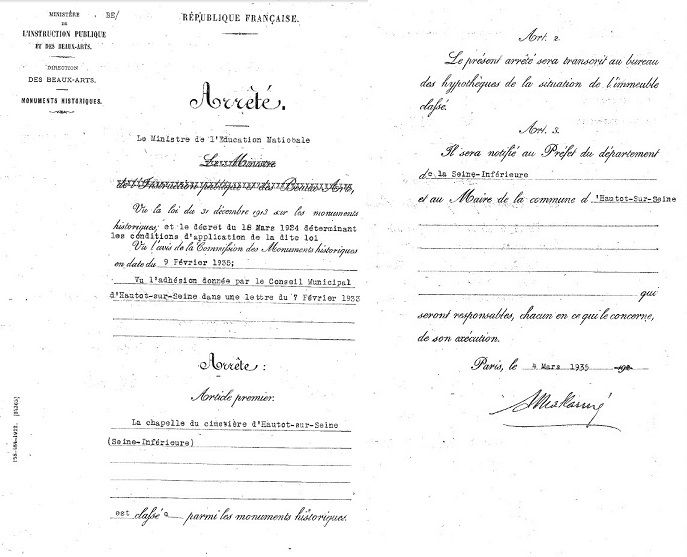 MINISTÈRE
DE
L'INSTRUCTION PUBLIQUE
ET DES BEAUX-ARTS.
DIRECTION
DES BEAUX-ARTS.
MONUMENTS HISTORIQUES.
BE/
RÉPUBLIQUE FRANÇAISE.
Arrêté.
Le Ministre de l'Education Nationale
Le Ministre
de l'Instruction publique et des Beaux-Arts,
Vu la loi du 31 décembre 1913 sur les monuments
historiques, et le décret du 18 Mars 1924 déterminant
les conditions d'application de la dite loi
Vu l'avis de la Commission des Monuments historiques
en date du 9 Février 1935;
Vu l'adhésion donnée par le Conseil Municipal
d'Hautot-sur-Seine dans une lettre du 7 Février 1933
Arrête :
Article premier.
La chapelle du cimetière d'Hautot-sur-Seine
(Seine-Inférieure)
est classée parmi les monuments historiques.
Art. 2.
Le présent arrêté sera transcrit au bureau
des hypothèques de la situation de l'immeuble
classé.
Art. 3.
Il sera notifié au Préfet du département
de la Seine-Inférieure
et au Maire de la commune d'Hautot-Sur-Seine
qui
seront responsables, chacun en ce qui le concerne,
de son exécution.
Paris, le 4 Mars 1935 192